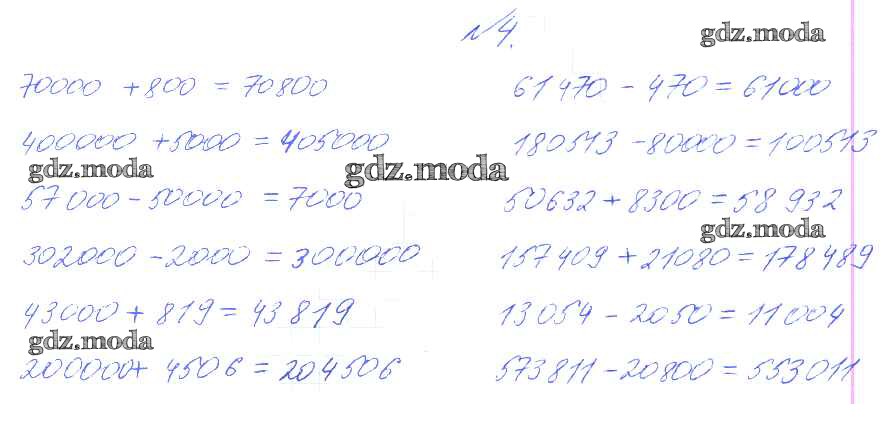 №4.
gdz.moda
70000 + 800 = 70800
61470 - 470 = 61000
400000 + 5000 = 405000
180513 - 80000 = 100513
gdz.moda
gdz.moda
57000 - 50000 = 7000
50632 + 8300 = 58932
gdz.moda
302000 - 2000 = 300000
157409 + 21080 = 178489
43000 + 819 = 43819
13054 - 2050 = 11004
gdz.moda
200000 + 4506 = 204506
573811 - 20800 = 553011